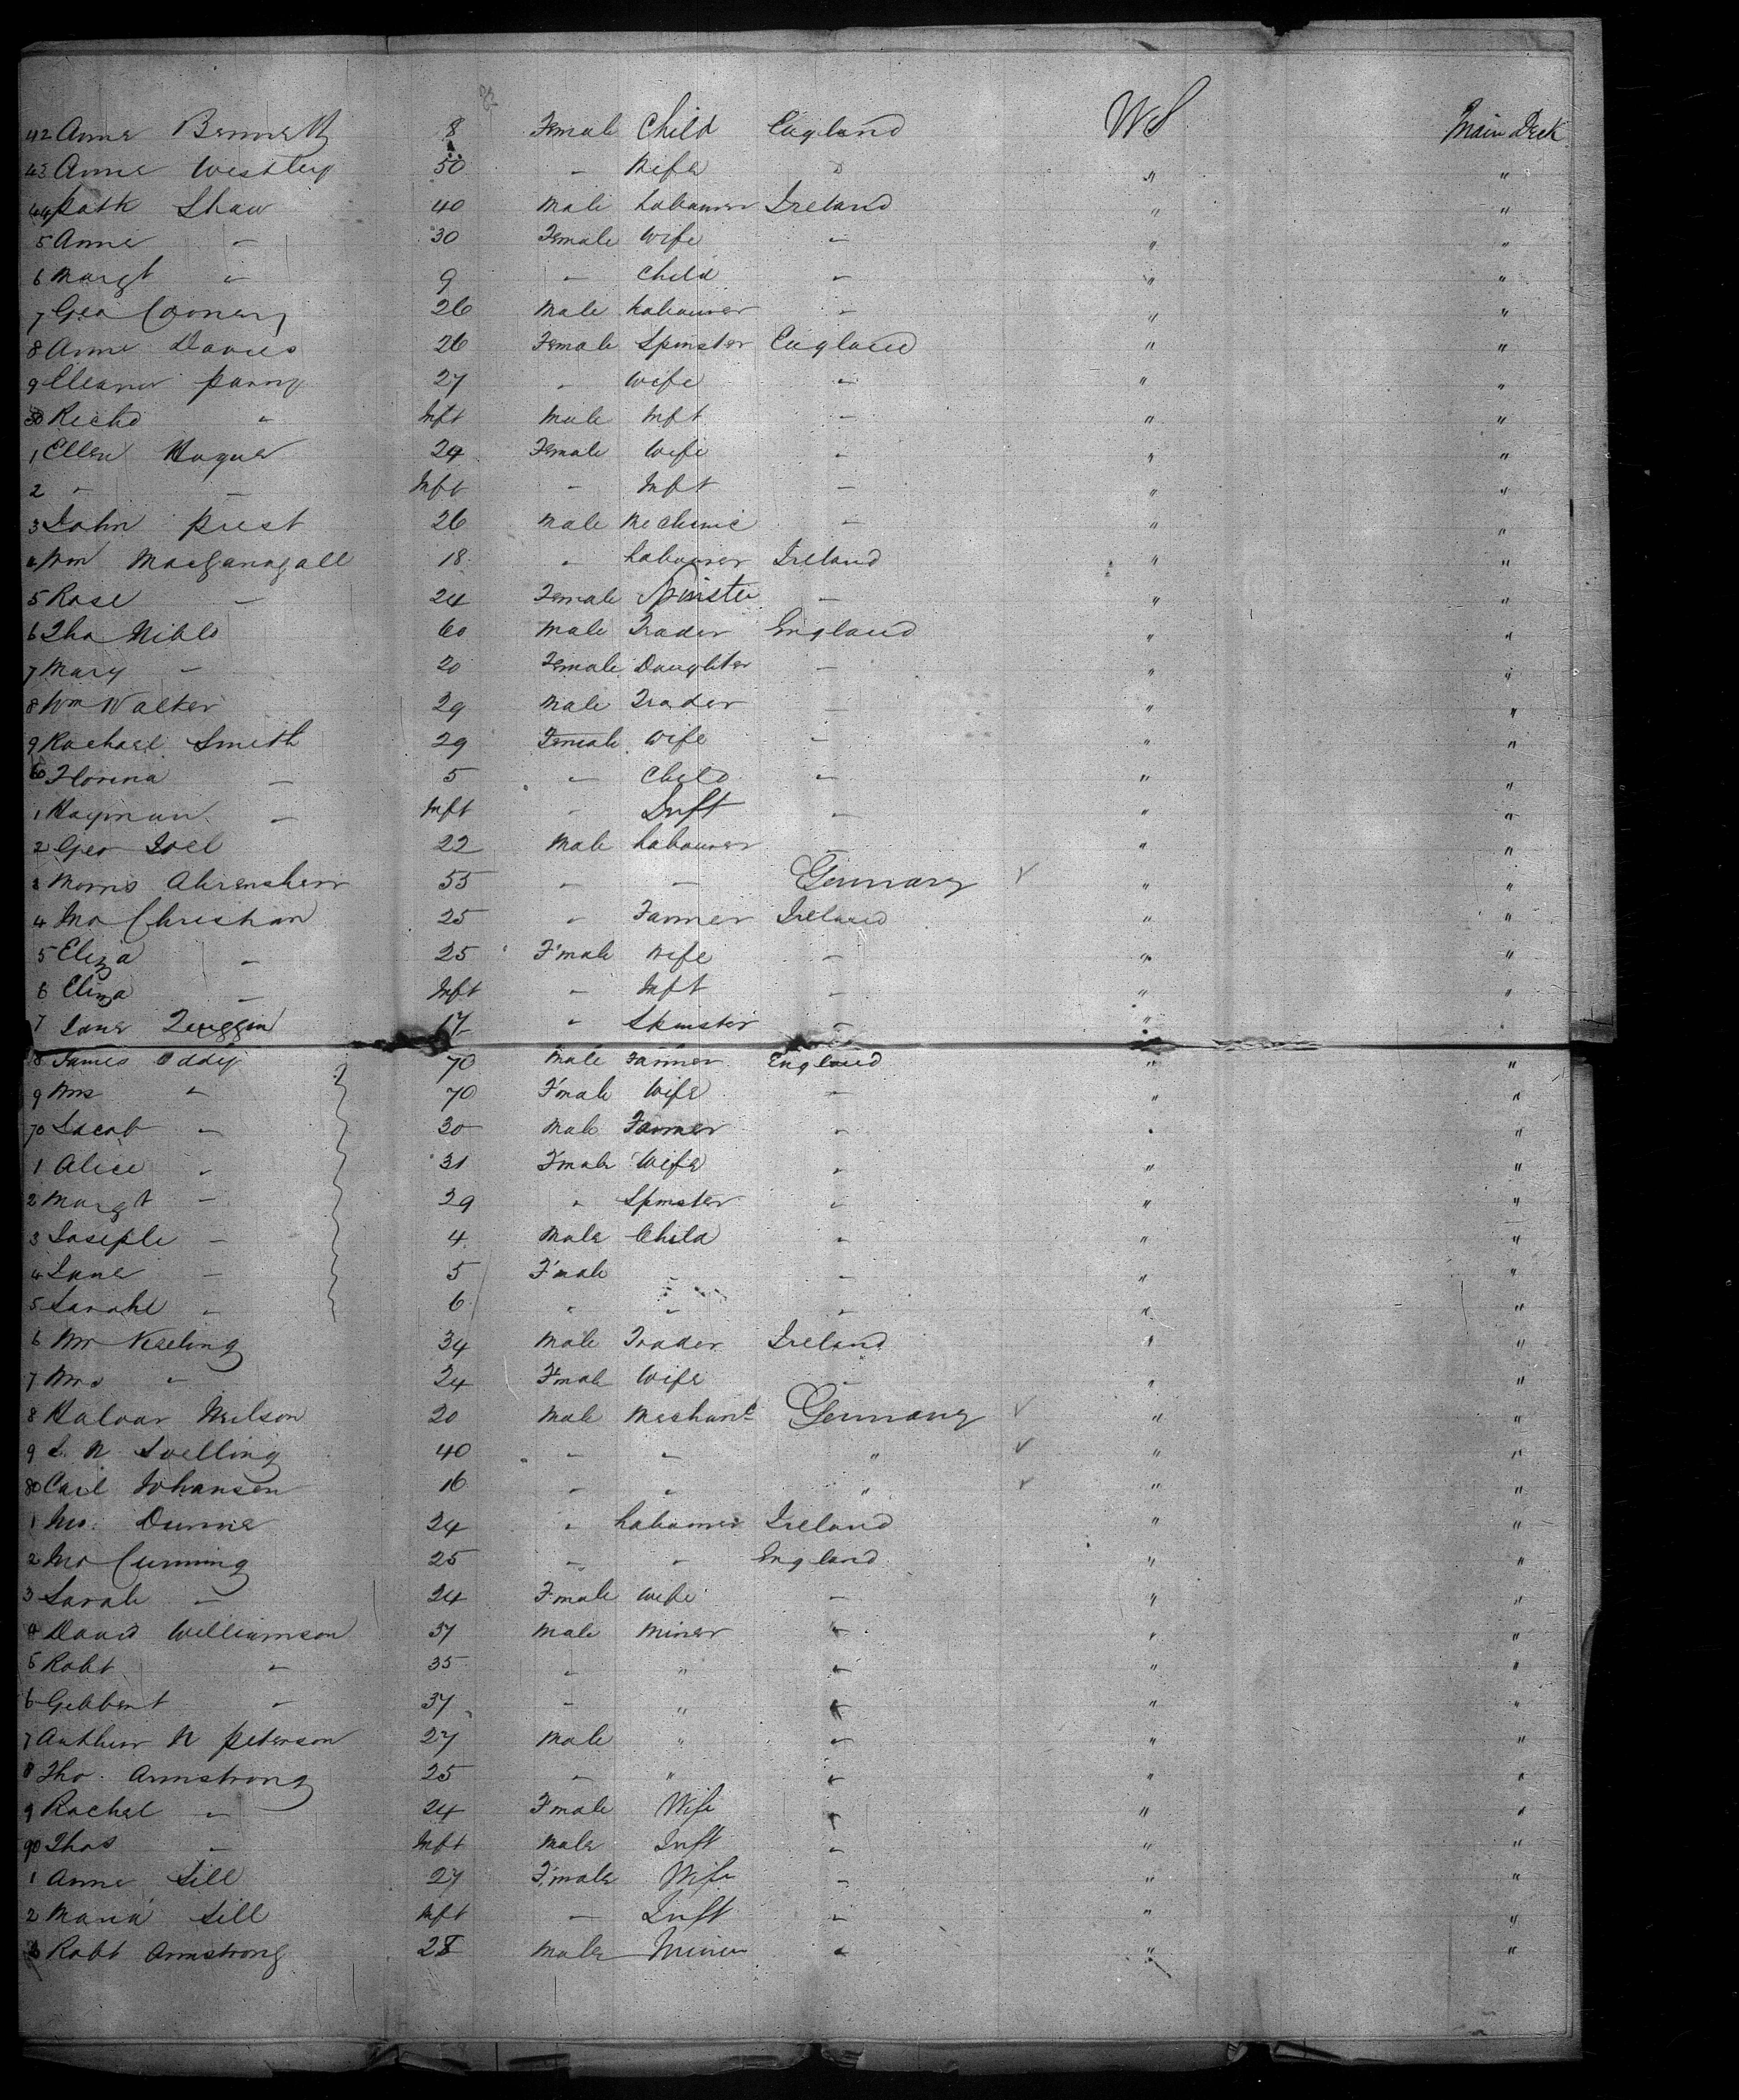 42 Anna Bennett 8 Female Child England US Main Deck
43 Anne Westley 50 — Wife " " "
44 Patk Shaw 40 Male Labourer Ireland " "
5 Anne — 30 Female Wife — " "
6 Margt " 9 — Child — " "
7 Geo Cooney 26 Male Labourer — " "
8 Anne Davies 26 Female Spinster England " "
9 Eleanor Parry 27 " Wife — " "
50 Richd " Inft Male Inft — " "
1 Ellen Hague 24 Female Wife " " "
2 — — Inft — Inft — " "
3 John Priest 26 Male Mechanic — " "
4 Wm 18 " Labourer Ireland " "
5 Rose — 24 Female Spinster — " "
6 Tho Niblo 60 Male Trader England " "
7 Mary — 20 Female Daughter — " "
8 Wm Walter 29 Male Trader — " "
9 Rachael Smith 29 Female Wife — " "
60 Florina — 5 — Child — " "
1 Hayman — Inft — Inft — " "
2 Geo Joel 22 Male Labourer — " "
3 Morris 55 — — Germany " "
4 Jno Christian 25 " Farmer Ireland " "
5 Eliza — 25 F'male Wife — " "
6 Eliza — Inft — Inft — " "
7 Jane Quiggin 17 " Spinster — " "
8 James Oddy 70 Male Farmer England " "
9 Mrs " 70 F'male Wife — " "
70 Jacob — 30 Male Farmer " " "
1 Alice " 31 F'male Wife " " "
2 Margt — 29 " Spinster " " "
3 Joseph — 4 Male Child " " "
4 Jane — 5 F'male — — " "
5 Sarah " 6 " " " " "
6 Mr Keeling 34 Male Trader Ireland " "
7 Mrs " 24 F'male Wife — " "
8 Halvar Neilson 20 Male Mechanc Germany " "
9 S. N. Snelling 40 — " " " "
80 Carl Johansen 16 — " " " "
1 Dunne 24 " Labourer Ireland " "
2 Jno Cumming 25 — " England " "
3 Sarah — 24 F'male Wife — " "
4 David Williamson 37 Male Miner " " "
5 Robt " 35 " " " " "
6 Gebbent " 37 — " " " "
7 Author N Peterson 27 Male " " " "
8 Tho. Armstrong 25 — " " " "
9 Rachel " 24 F'male Wife " " "
90 Thos — Inft Male Inft " " "
1 Anne Sill 27 F'male Wife — " "
2 Maria Sill Inft — Inft " " "
3 Robt Armstrong 28 Male Miner " " "